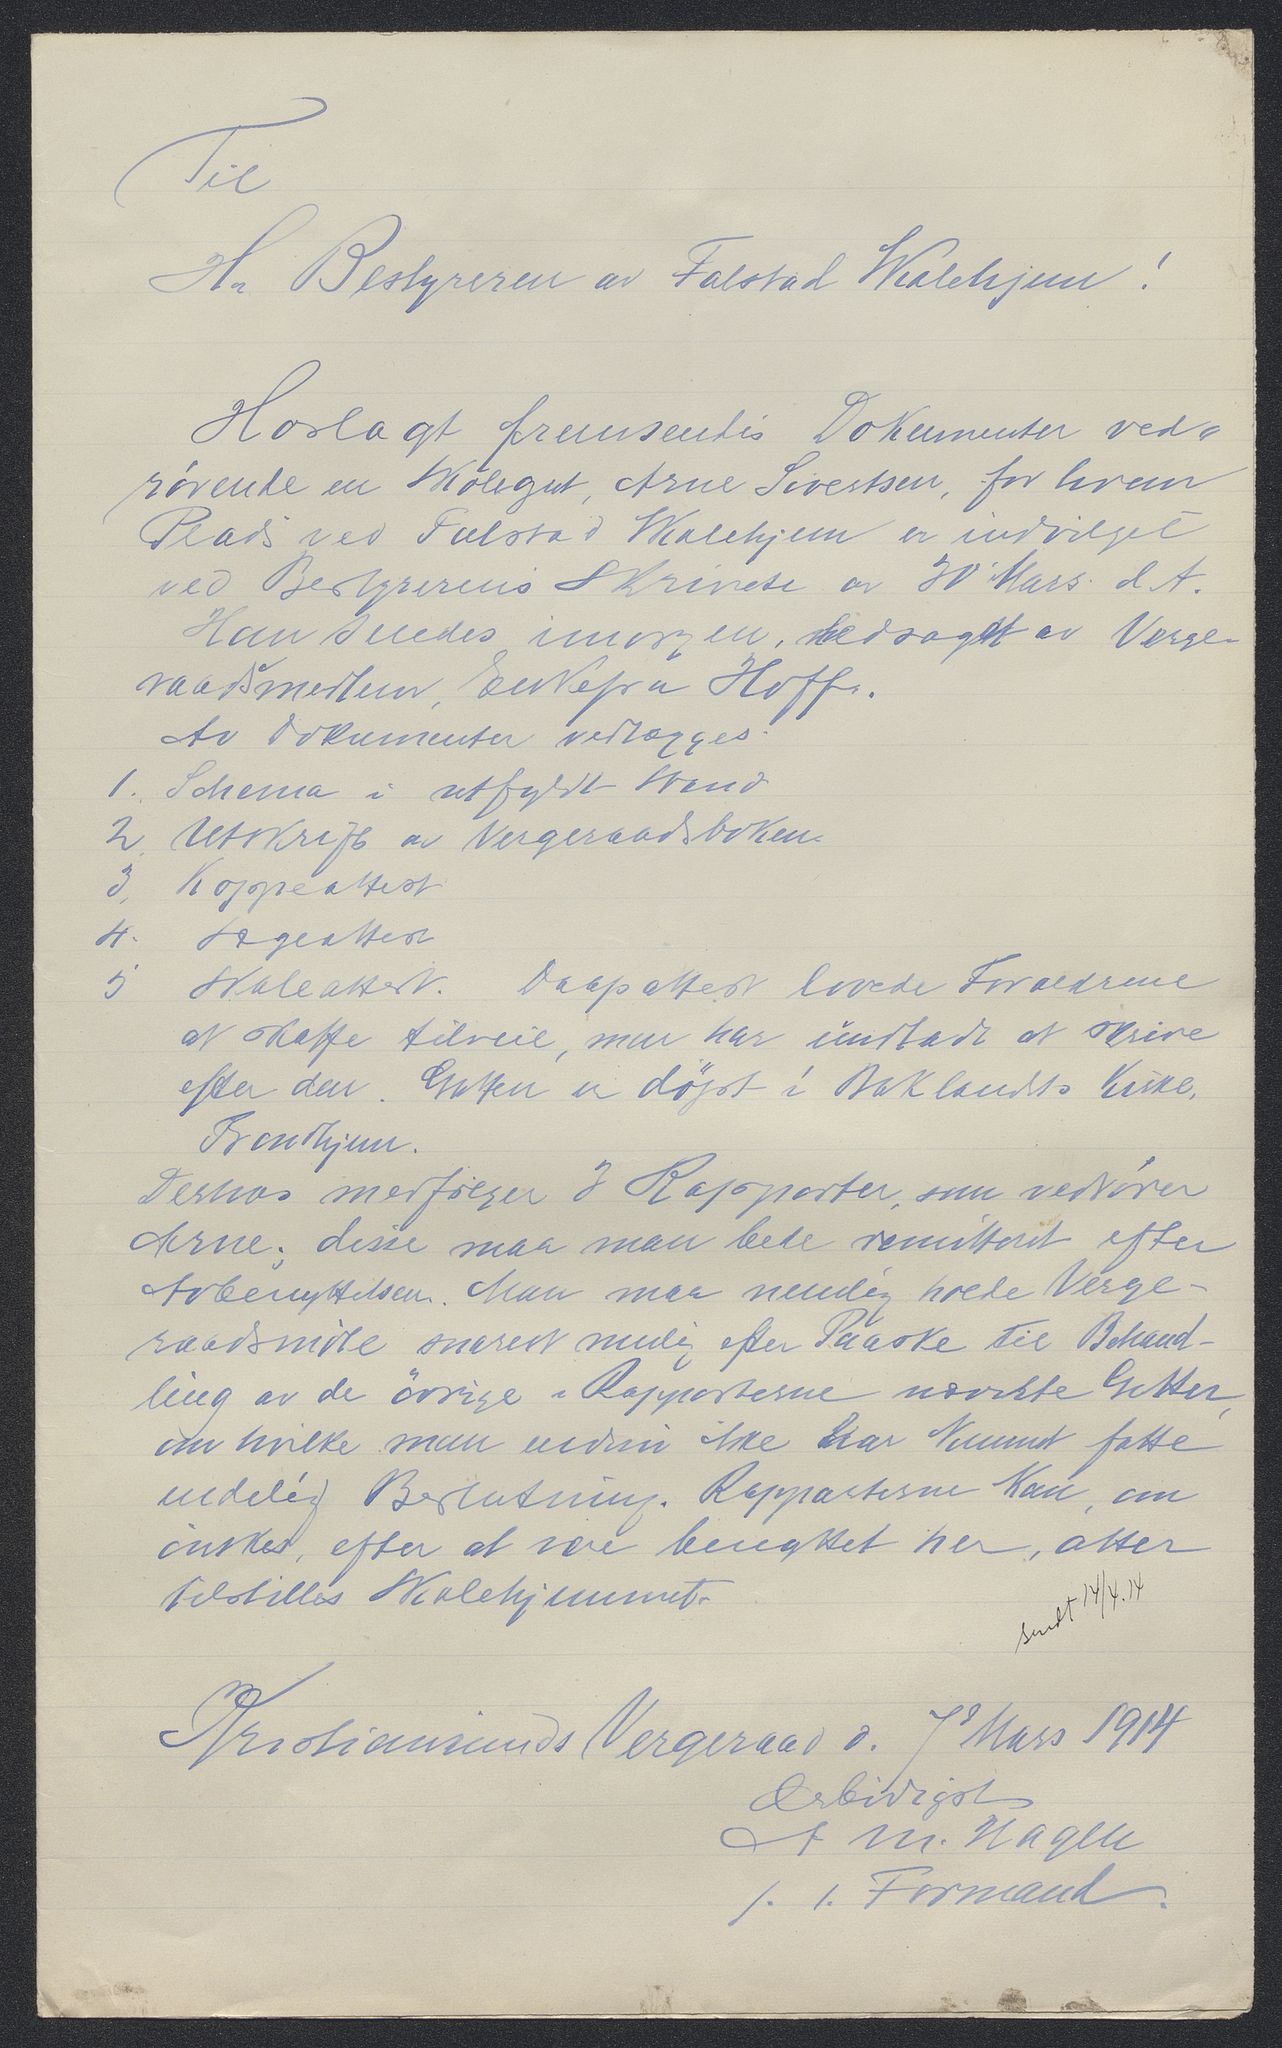 Til
Hr Bestyreren av Falstad Skolehjem!
Hoslagt fremsendes Dokumenter ved-
rörende en Skolegut, Arne Sivertsen, for hvem
Plads ved Falstad Skolehjem er indvilget
ved Bestyrerens Skrivelse av 30 Mars d. A.
Han sendes imorgen, ledsaget av Verge-
raadsmedlem, Enkefru Hoff.
Av Dokumenter vedlægges
1. Schema i utfyldt Stand
2. Utskrift av Vergeraadsboken.
3. Koppeattest
4. Lægeattest
5 Skoleattest. Daapattest lovede Forældrene
at skaffe tilveie, men har undladt at skrive
efter den. Gutten er döpt i Baklandets Kirke,
Trondhjem.
Derhos medfölger 3 Rapporter, som vedrörer
Arne; disse maa man bede remitteret efter
Avbenyttelsen. Man maa nemlig holde Verge-
raadsmöte snarest mulig efter Paaske til Behand-
ling av de övrige i Rapporterne nævnte Gutter,
om hvilke man endnu ikke har kunnet fatte
endelig Beslutning. Rapporterne kan, om
önskes, efter at være benyttet her, atter
tilstilles Skolehjemmet.
sendt 14/4.14
Kristiansunds Vergeraad d. 7d Mars 1914
Ærbödigst
A M. Hagen
f. t. Formand.